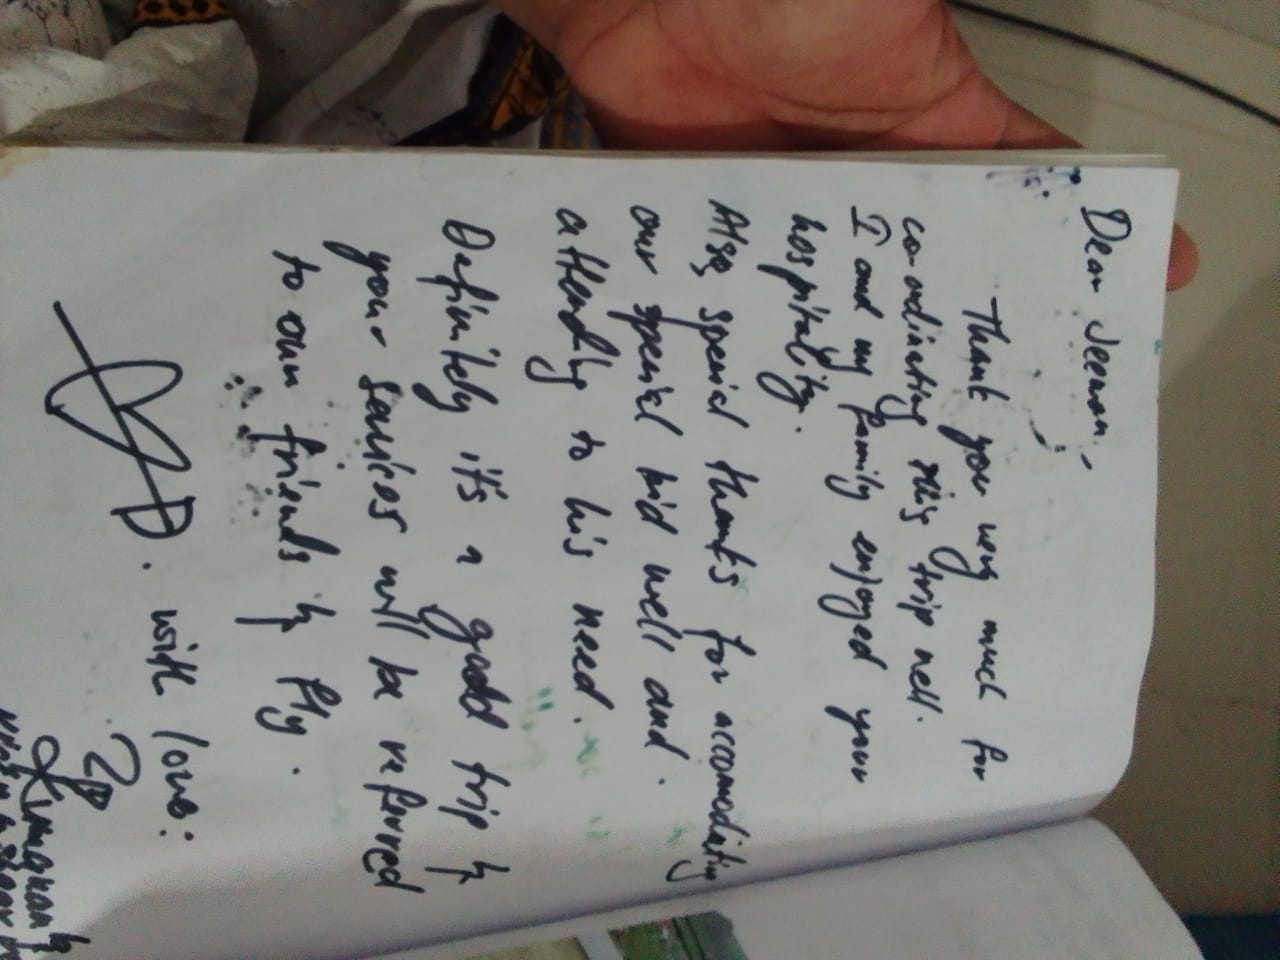 Dear Jeemon,
Thank you very much for
co-ordinating this trip well.
I and my family enjoyed your
hospitality.
Also, special thanks for accomodating
our special kid well and.
attending to his need.
Definitely it's a good trip &
your services will be referred
to our friends & fly.
with love: